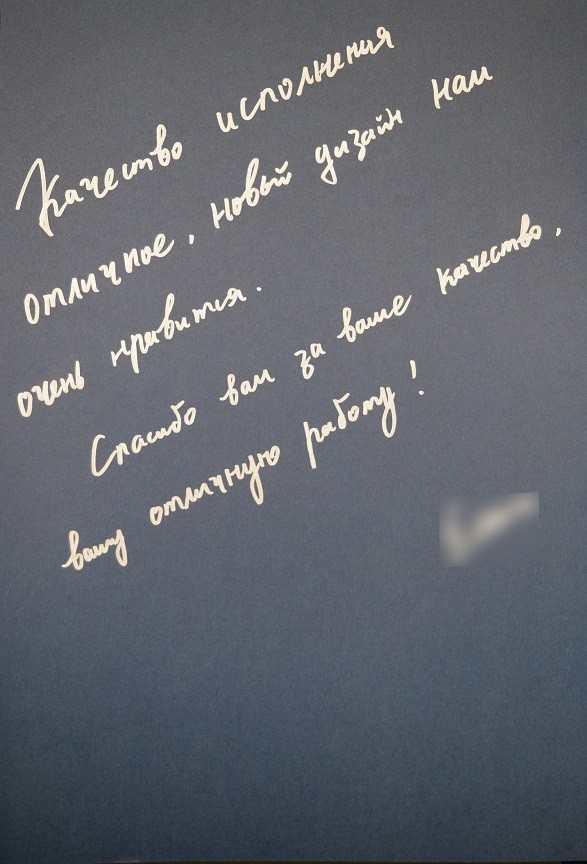 Качество исполнения
отличное, новый дизайн нам
очень нравится.
Спасибо вам за ваше качество,
вашу отличную работу!